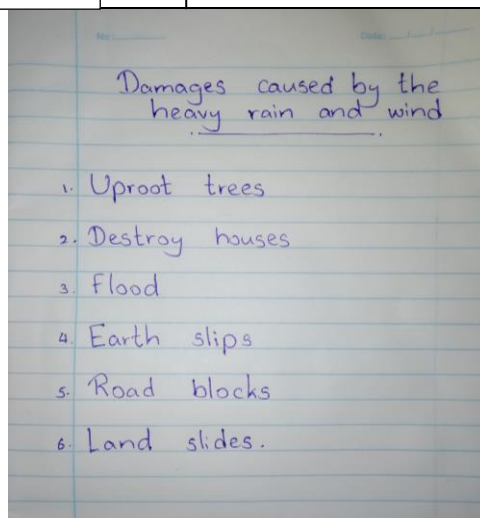 No:
Date: / /
Damages caused by the
heavy rain and wind
1. Uproot trees
2. Destroy houses
3. Flood
4. Earth slips
5. Road blocks
6. Land slides.